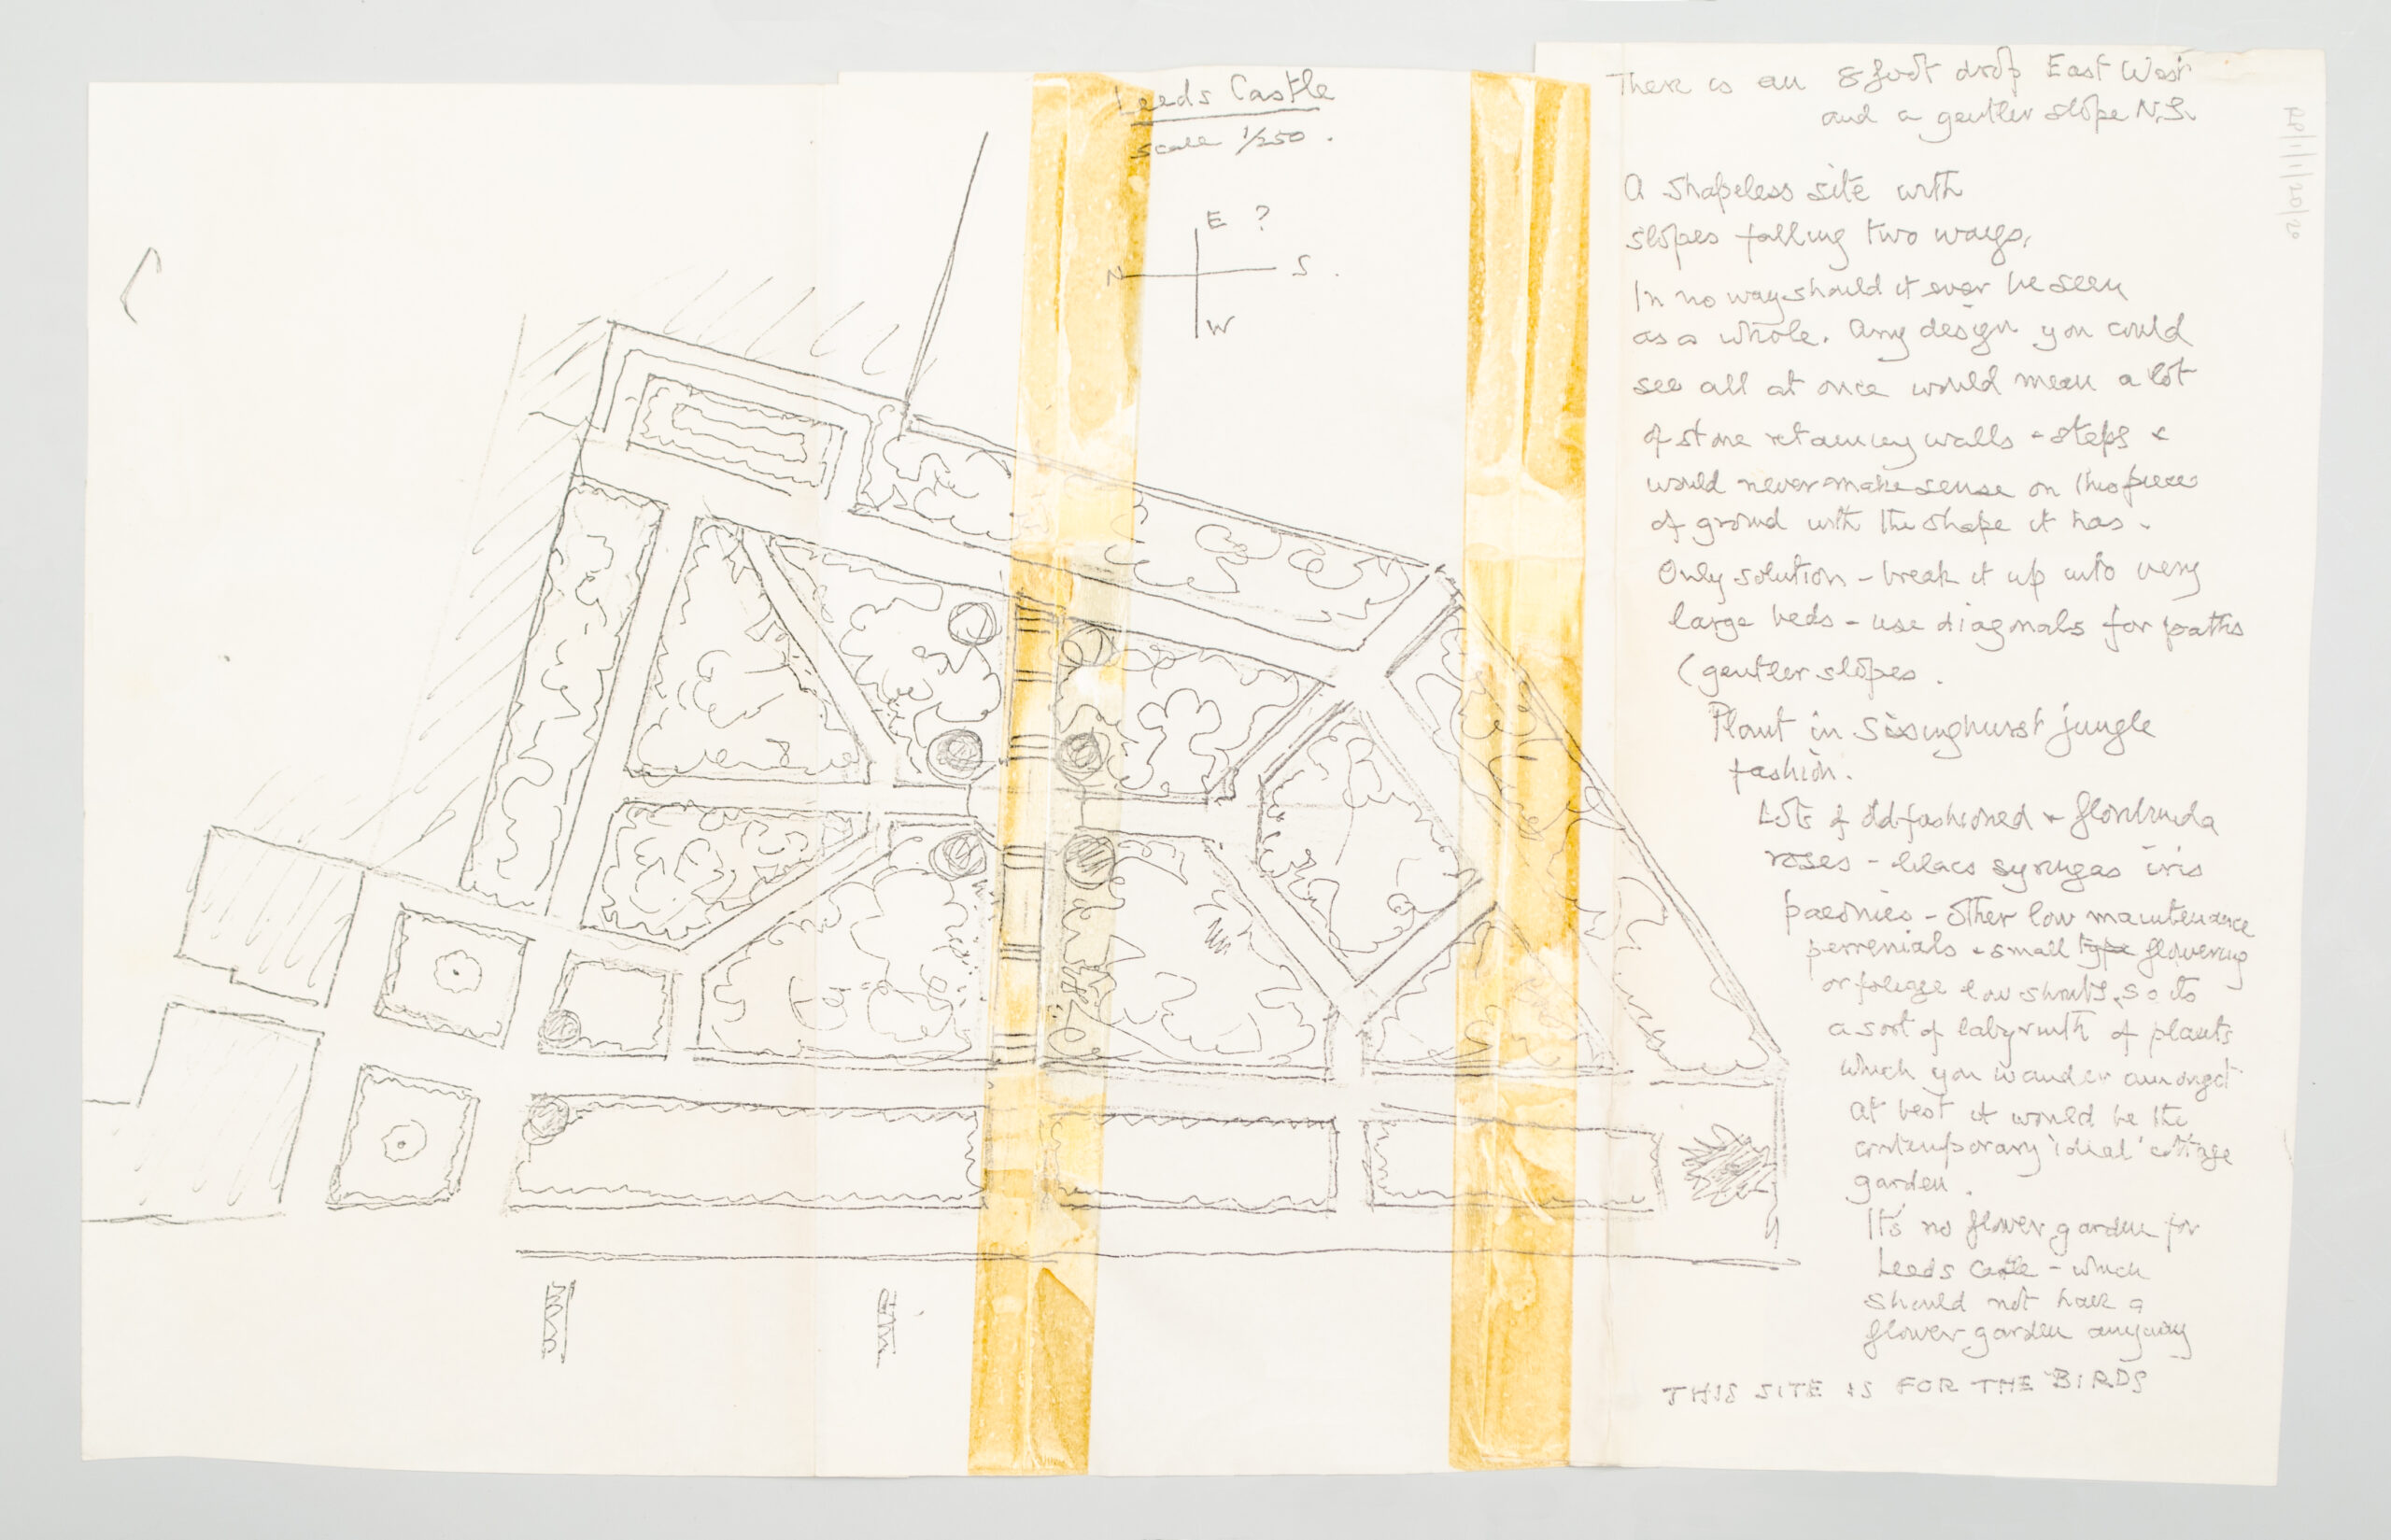 Leeds Castle
scale 1/250 .
E ?
N S .
W
There is an 8 foot drop East West
and a gentler slope N.S.
A shapeless site with
slopes falling two ways,
In no way should it ever be seen
as a whole. Any design you could
see all at once would mean a lot
of stone retaining walls + steps +
would never make sense on this piece
of ground with the shape it has .
Only solution - break it up into very
large beds - use diagonals for paths
(gentler slopes .
Plant in Sissinghurst jungle
fashion .
Lots of old fashioned + floribunda
roses - lilacs syringas iris
paeonies - other low maintenance
perrenials + small type flowering
or foliage low shrubs, so its
a sort of labyrinth of plants
which you wander amongst
At best it would be the
contemporary 'ideal' cottage
garden .
It's no flower garden for
Leeds Castle - which
should not have a
flower garden anyway
THIS SITE IS FOR THE BIRDS
RP/1/1/20/20